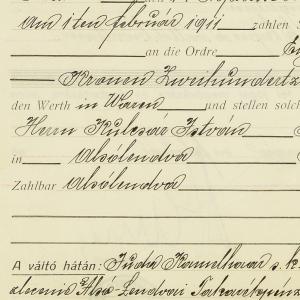 Am 1ten februar 1911 zahlen
an die Ordre
Kronen Zweihundertz
den Werth in Waren und stellen solch
Herrn Kulcsár István
in Alsólendva
Zahlbar Alsólendva
A váltó hátán: Juda s. k.
Alsó-Lendvai Takarékpénz